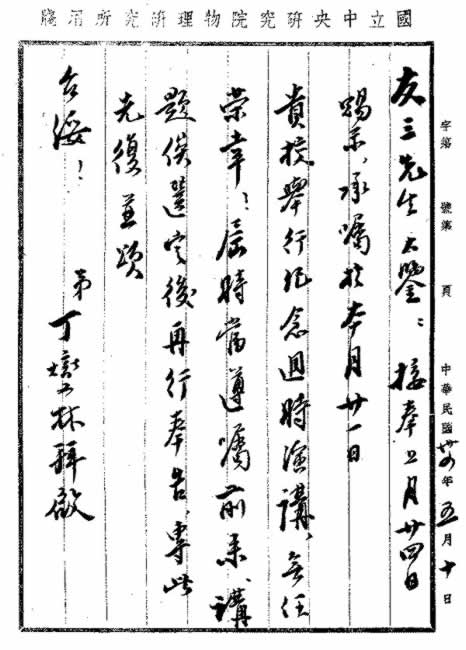 國立中央研究院物理研究所用牋
字第　號第　頁　中華民國廿四年五月十日
友三先生大鑒：接奉上月廿四日
賜示，承囑於本月廿一日
貴校舉行紀念週時演講，無任
榮幸！屆時當遵囑前來，講
題俟選定後再行奉告，專此
先復並頌
台綏！
弟丁燮林拜啟